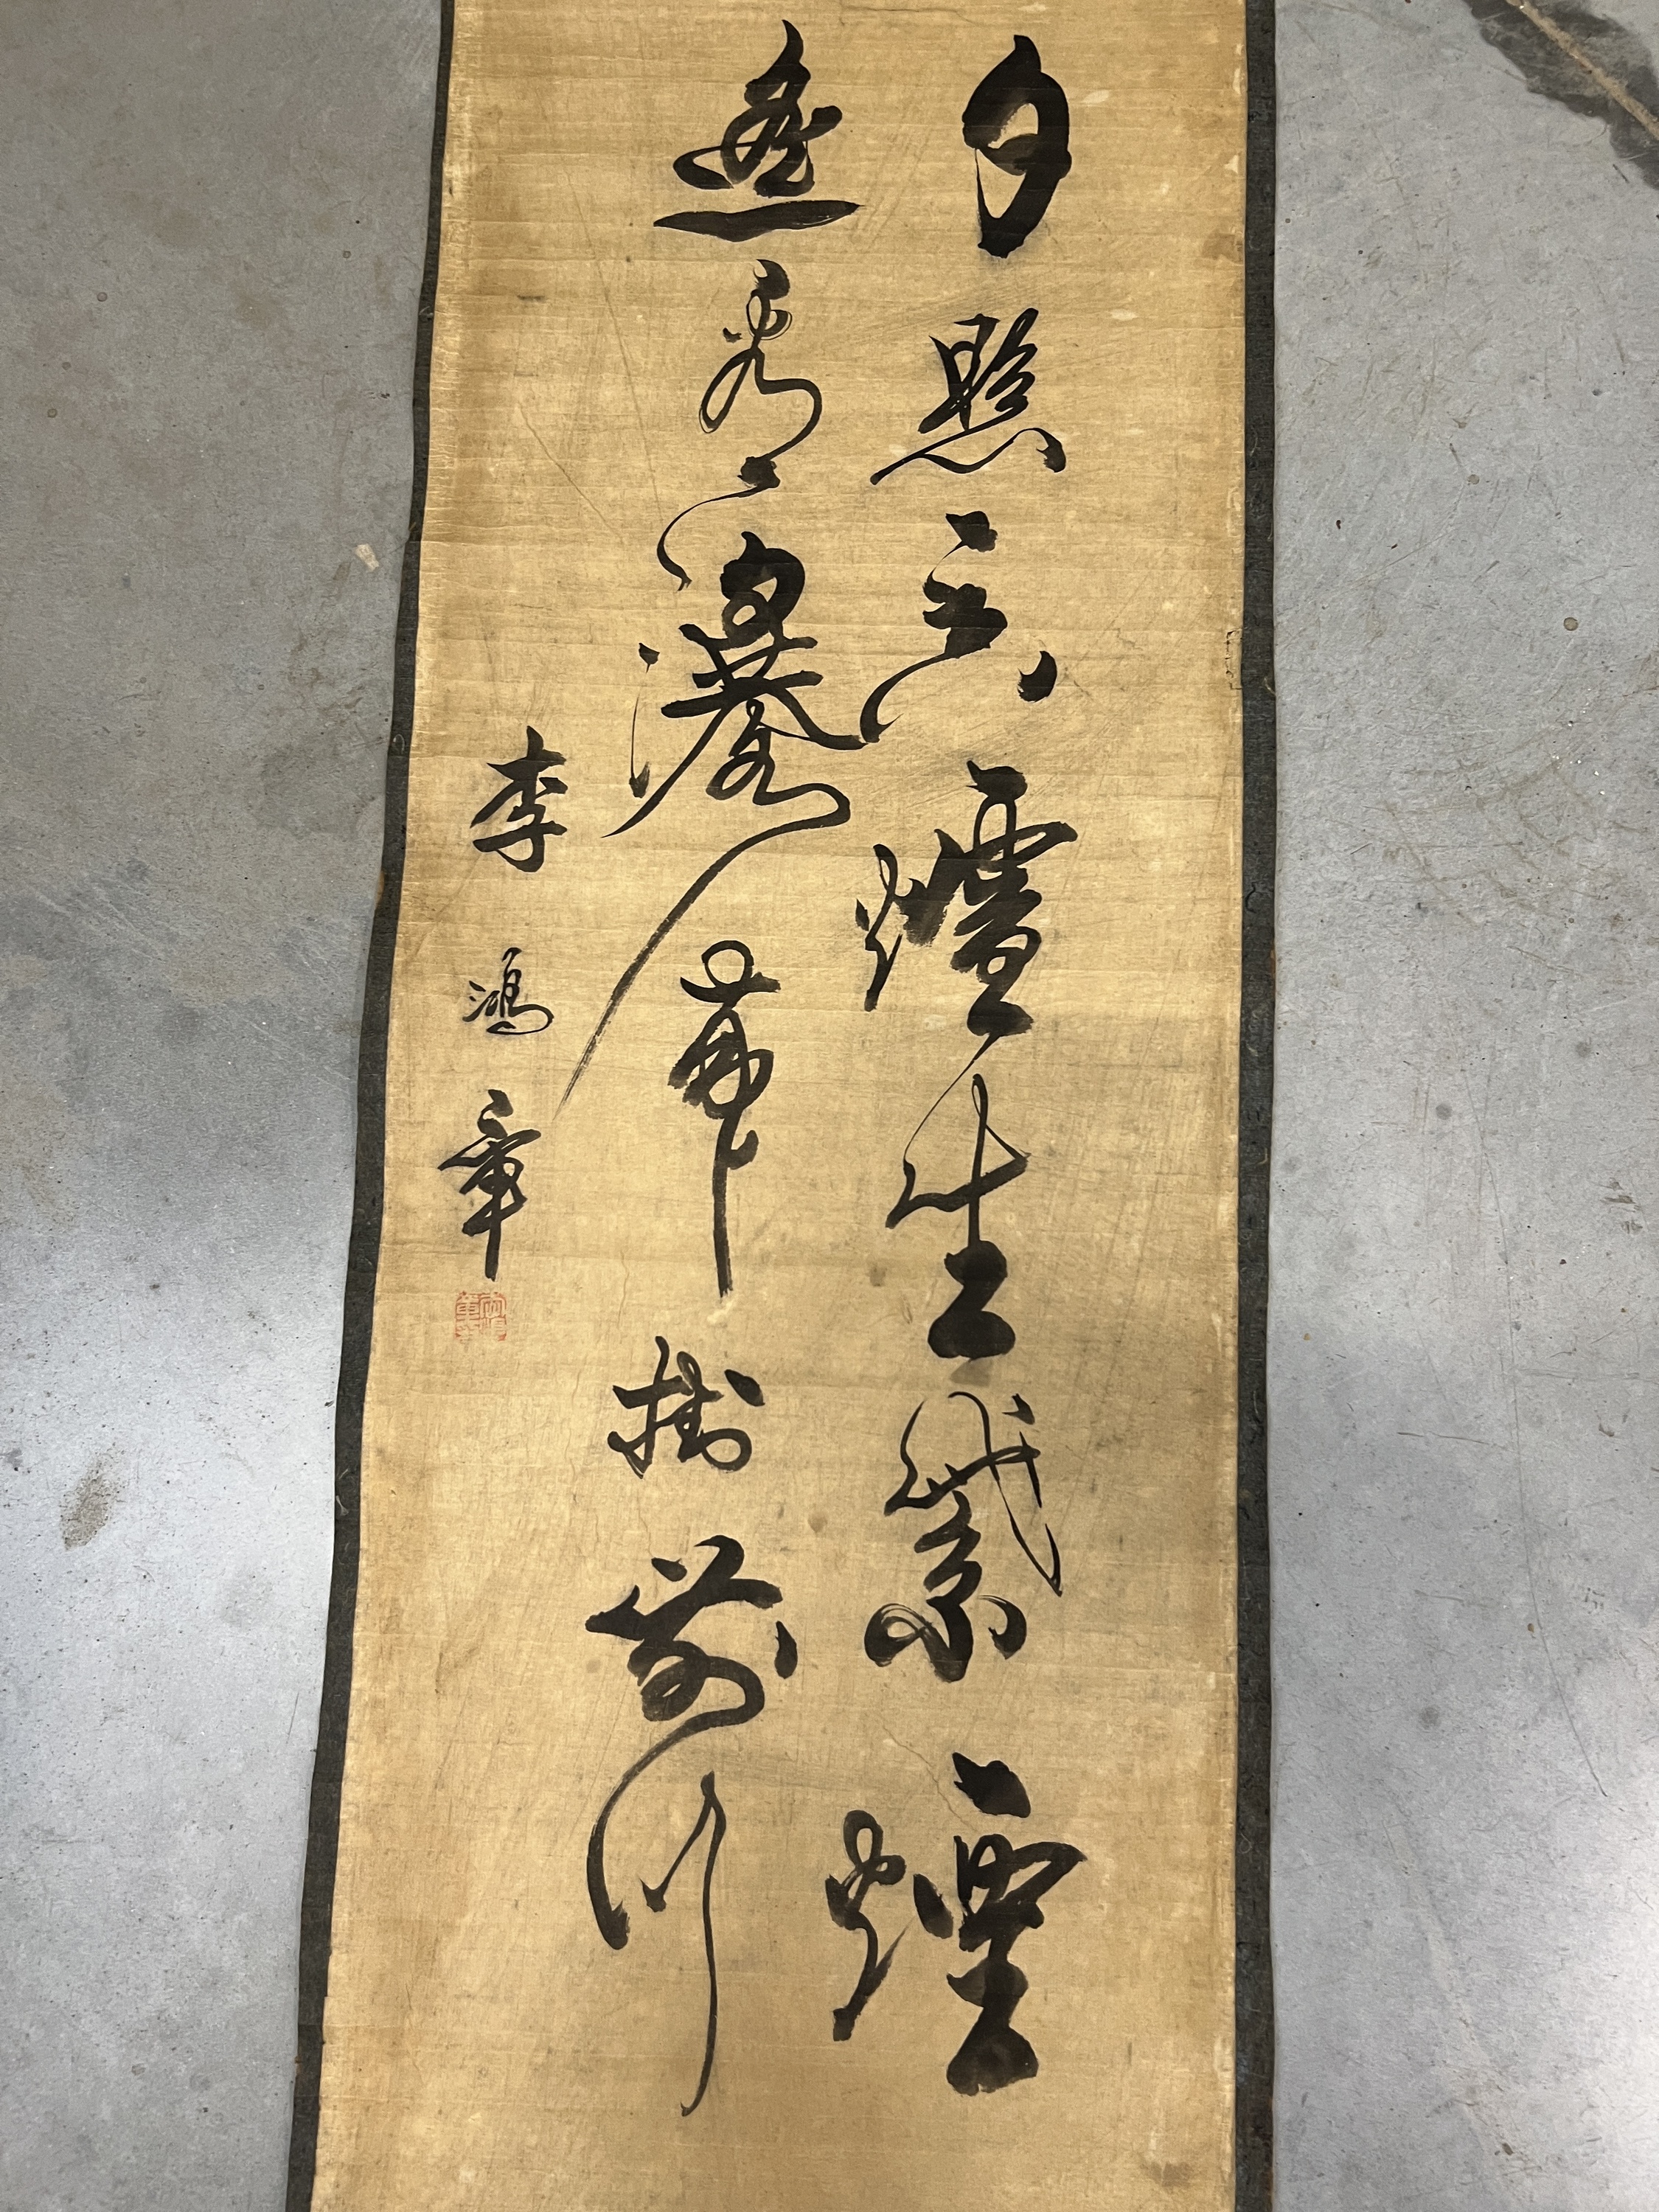 日照香爐生紫煙
遙看瀑布掛前川
李鴻章